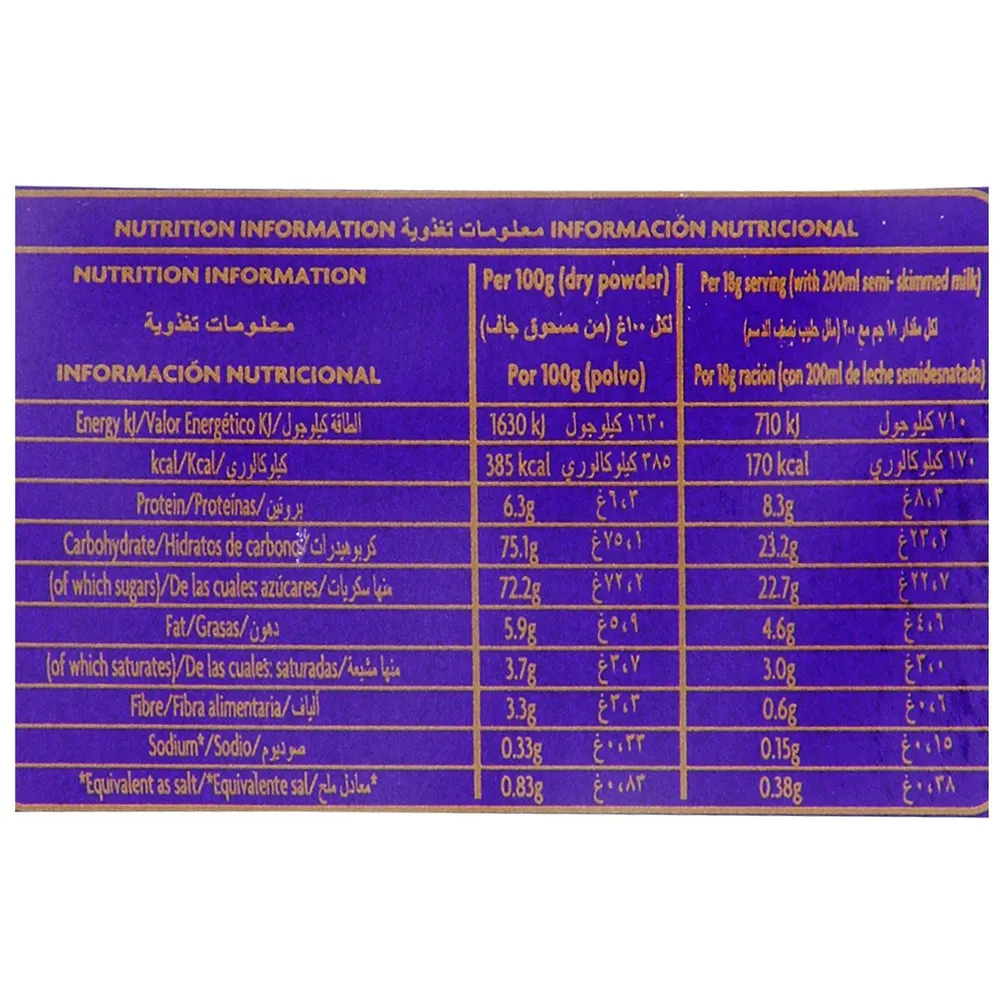 NUTRITION INFORMATION معلومات تغذوية INFORMACIÓN NUTRICIONAL
NUTRITION INFORMATION
معلومات تغذوية
INFORMACIÓN NUTRICIONAL
Per 100g (dry powder)
لكل ١٠٠غ (من مسحوق جاف)
Por 100g (polvo)
Per 18g serving (with 200ml semi- skimmed milk)
لكل مقدار ١٨ جم مع ٢٠٠ (ملل حليب نصف الدسم)
Por 18g ración (con 200ml de leche semidesnatada)
Energy kJ/Valor Energético KJ/الطاقة كيلوجول 1630 kJ ١٦٣٠ كيلوجول 710 kJ ٧١٠ كيلوجول
kcal/Kcal/كيلوكالوري 385 kcal ٣٨٥ كيلوكالوري 170 kcal ١٧٠ كيلوكالوري
Protein/Proteínas/بروتين 6.3g ٦,٣غ 8.3g ٨,٣غ
Carbohydrate/Hidratos de carbono/كربوهيدرات 75.1g ٧٥,١غ 23.2g ٢٣,٢غ
(of which sugars)/De las cuales: azúcares/منها سكريات 72.2g ٧٢,٢غ 22.7g ٢٢,٧غ
Fat/Grasas/دهون 5.9g ٥,٩غ 4.6g ٤,٦غ
(of which saturates)/De las cuales: saturadas/منها مشبعة 3.7g ٣,٧غ 3.0g ٣,٠غ
Fibre/Fibra alimentaria/ألياف 3.3g ٣,٣غ 0.6g ٠,٦غ
Sodium*/Sodio/صوديوم 0.33g ٠,٣٣غ 0.15g ٠,١٥غ
*Equivalent as salt/*Equivalente sal/معادل ملح* 0.83g ٠,٨٣غ 0.38g ٠,٣٨غ